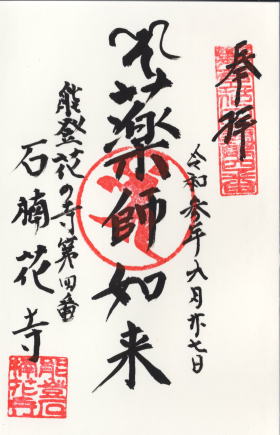 奉拝
令和参年八月廿七日
薬師如来
能登花の寺第四番
石楠花寺